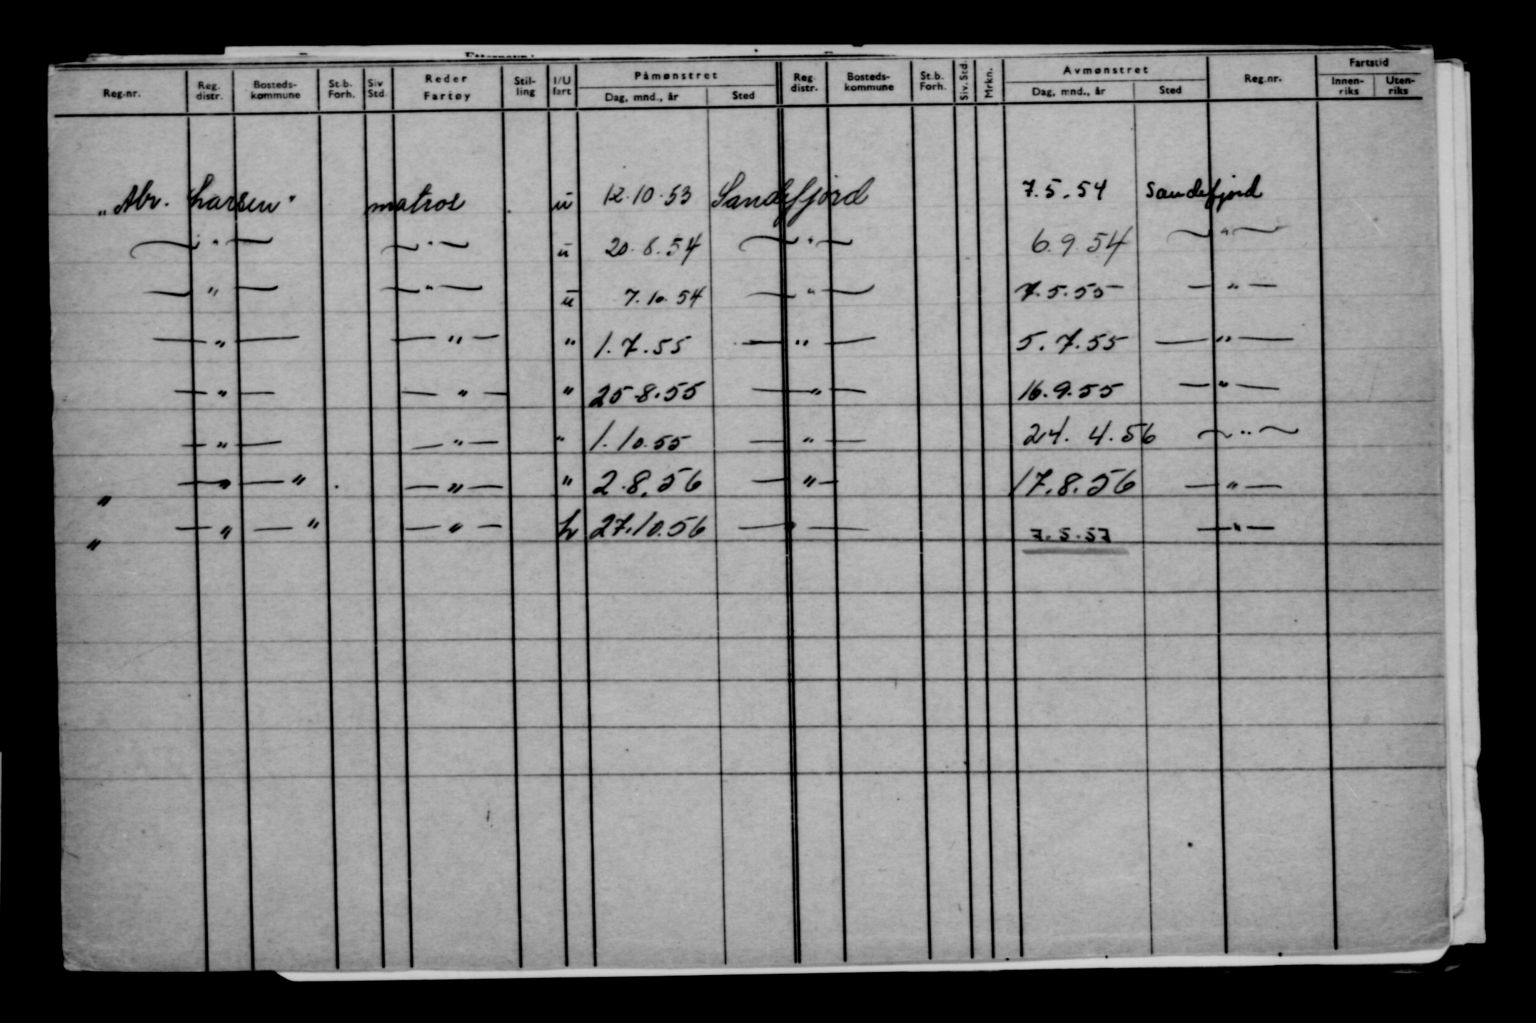 Reg.nr. Reg. distr. Bosteds-kommune St.b. Forh. Siv Std. Reder Fartøy Stil-ling I/U fart Påmønstret Dag, mnd., år Sted Reg. distr. Bosteds-kommune St.b. Forh. Siv. Std. Mrkn. Avmønstret Dag, mnd., år Sted Reg.nr. Fartstid Innen-riks Uten-riks
"Abr. Larsen" matros u 12.10.53 Sandefjord 7.5.54 Sandefjord
— " — — " — u 20.8.54 — " — 6.9.54 — " —
— " — — " — u 7.10.54 — " — 7.5.55 — " —
— " — — " — " 1.7.55 — " — 5.7.55 — " —
— " — — " — " 25-8.55 — " — 16.9.55 — " —
— " — — " — " 1.10.55 — " — 24.4.56 — " —
" — " — " — " — " 2.8.56 — " — 17.8.56 — " —
" — " — " — " — 27.10.56 — " — 7.5.57 — " —